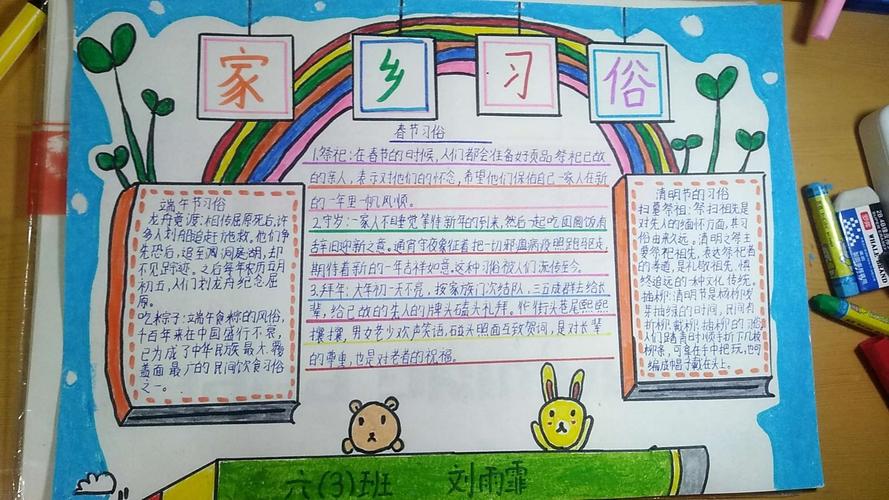 家乡习俗
春节习俗
1.祭祀:在春节的时候,人们都会准备好贡品祭祀已故
的亲人,表示对他们的怀念,希望他们保佑自己一家人在新
的一年里一帆风顺。
2.守岁:一家人不睡觉等待新年的到来,然后一起吃团圆饭有
辞旧迎新之意。通宵守夜象征着把一切邪瘟病疫照跑驱走,
期待着新的一年吉祥如意。这种习俗被人们流传至今。
3.拜年:大年初一天不亮,按家族门次结队,三五成群去给长
辈,给已故的亲人的牌头磕头礼拜。
街头巷尾熙熙
攘攘,男女老少欢声笑语,磕头照面互致贺词,是对长辈
的尊重,也是对老者的祝福。
端午节习俗
龙舟竟渡:相传屈原死后,许
多人划船追赶拯救。他们争
先恐后,追至洞庭湖,却
不见踪迹。之后每年农历五月
初五,人们划龙舟纪念屈
原。
吃粽子:端午食粽的风俗,
千百年来在中国盛行不衰,
已为成了中华民族最大覆
盖面最广的民间饮食习俗
之一。
清明节的习俗
扫墓祭祖:祭扫祖先是
对先人的缅怀方面,其习
俗由来久远。清明之祭主
要祭祀祖先,表达祭祀者
的孝道,是礼敬祖先、慎
终追远的一种文化传统。
插柳:清明节是杨柳发
芽抽绿的时间,民间有
折柳、戴柳、插柳的习俗
人们踏青时顺手折下几枝
柳条,可拿在手中把玩,也可
编成帽子戴在头上。
六(3)班 刘雨霏
WHALE